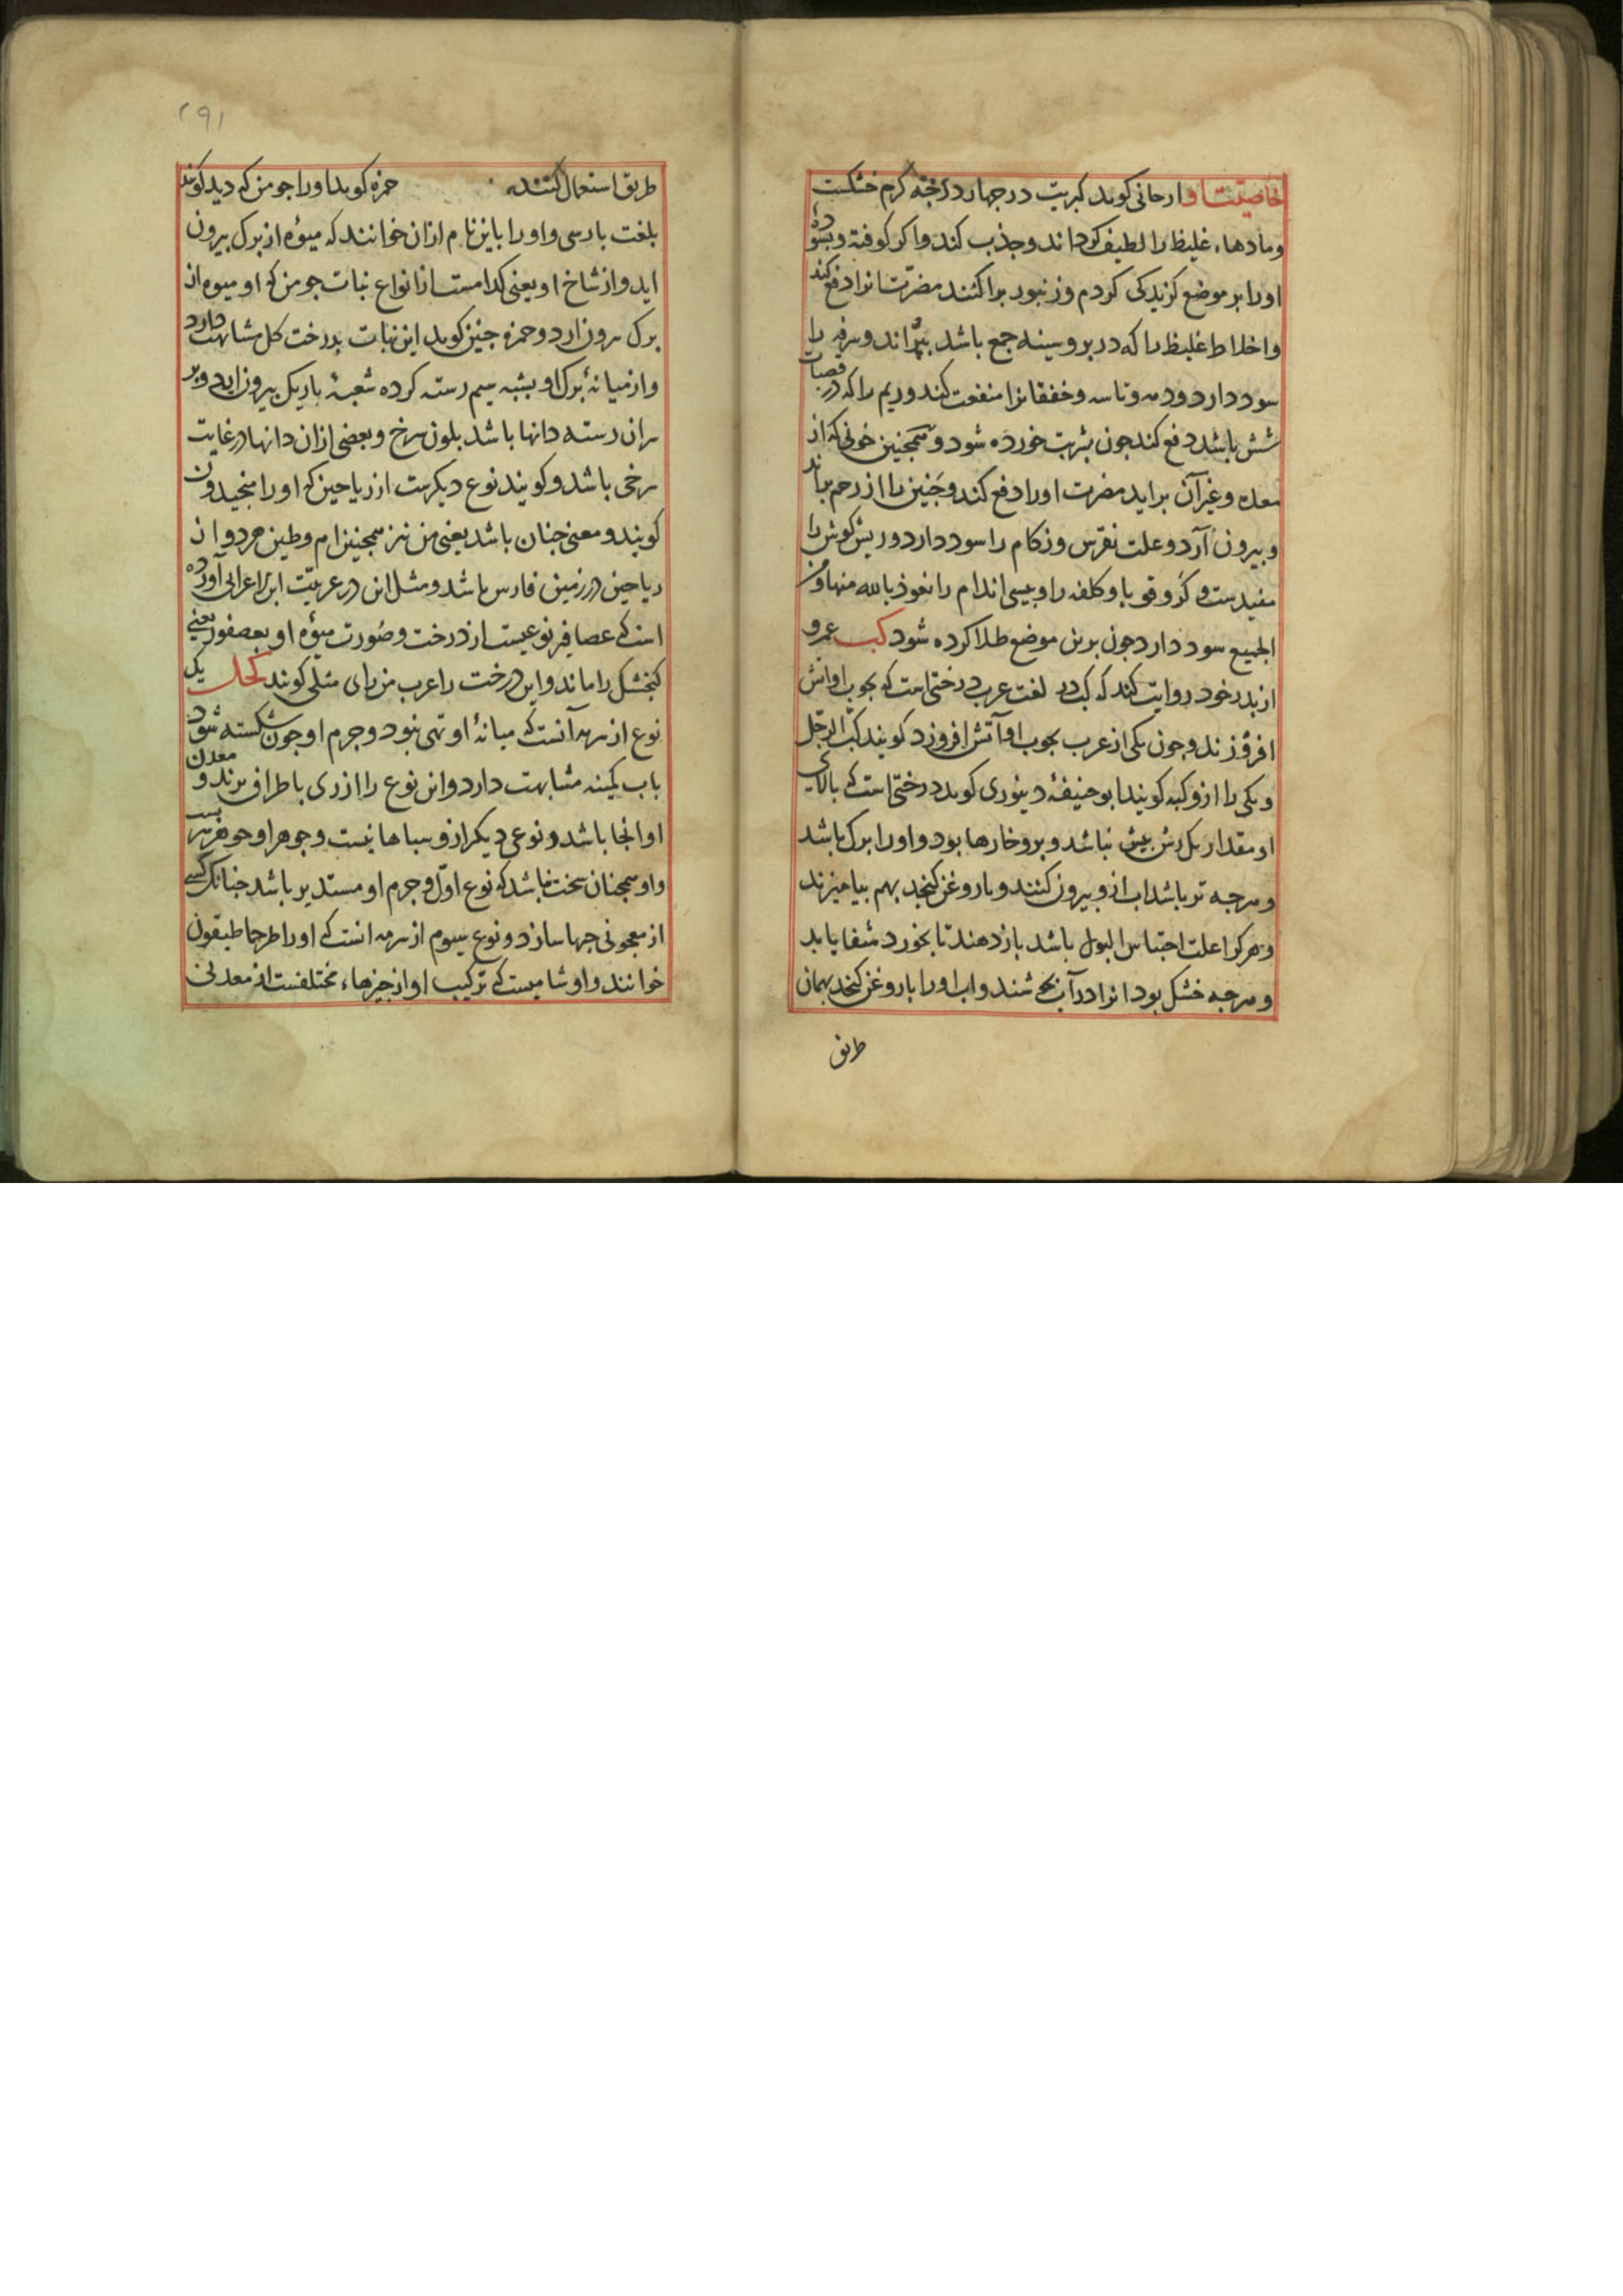 خاصیت او ارحانی کوید کبریت در چهار درجه کرم خشکست
و مادهاء غلیظ را لطیف کرداند و جذب کند و اکر کوفته و بیخته
اورا بر موضع کزیدکی کژدم و زنبور پراکنند مضرت انرا دفع کند
و اخلاط غلیظ را که در بر و سینه جمع باشد براند و سرفه را
سود دارد و دمه و تاسه و خفقانرا منفعت کند و ریم را که در قصبات
شش باشد دفع کند جون بشربت خورده شود و همجنین خونی که از
معده و غیر آن براید مضرت اورا دفع کند و جنین را از رحم براند
و بیرون آرد و علت نقرس و زکام را سود دارد و ریش کوش را
مفیدست و کر و قوبا و کلفه را و پیسی اندام را نعوذ بالله منها و من
الجمیع سود دارد جون برین موضع طلا کرده شود کب عمرو
از پدر خود روایت کند که کب در لغت عرب درختی است که بجوب او اتش
افروزند و جون یکی از عرب بجوب او آتش افروزد کویند کب الرجل
و یکی را ازو کبه کویند ابو حنیفه دینوری کوید درختی است که بالای
او مقدار یک رش بیش نباشد و برو خارها بود و اورا برک باشد
و هرجه تر باشد اب ازو بیرون کنند و با روغن کنجد بهم بیامیزند
و هر کرا علت احتباس البول باشد بازدهند تا بخورد شفا یابد
و هرجه خشک بود انرا در آب بجوشند و اب اورا با روغن کنجد بهمان
طریق
۲۹۱
طریق استعمال کنند حمزه کوید اورا جو من که دید کویند
بلغت پارسی و اورا باین نام ازان خوانند که میوه از برک بیرون
اید و از شاخ او یعنی کدامست از انواع نبات جو من که او میوه از
برک بیرون ارد و حمزه جنین کوید این نبات بدرخت کل مشابهت دارد
و از میانهٔ برک او بشبه سیم رسته کرده شعبهٔ باریک بیرون اید و بر
سر ان رسته دانها باشد بلون سرخ و بعضی ازان دانها در غایت
سرخی باشد و کویند نوع دیکرست از ریاحین که اورا
کویند و معنی جنان باشد یعنی من نیز همجنین ام و طین هر دو از
ریاحین در زمین فارس باشد و مثل این در عربیت ابن الاعرابی آورده
است که عصافیر نوعیست از درخت و صورت میوه او بعصفور یعنی
کنجشک را ماند و این درخت را عرب من رای مثلی کویند کحل یک
نوع از سرمه آنست که میانهٔ او تهی نبود و جرم او جون شکسته شود
باب کینه مشابهت دارد و این نوع را از ری باطراف برند و معدن
او انجا باشد و نوعی دیکر ازو سپاهانیست و جوهر او جوهر سر بیست
و او همجنان سخت نباشد که نوع اول و جرم او مستدیر باشد جنانک کسی
از معجونی جبها سازد و نوع سیوم از سرمه انست که اورا طرحماطیقون
خوانند و او شامیست که ترکیب او از جیزهاء مختلفست از معدنی